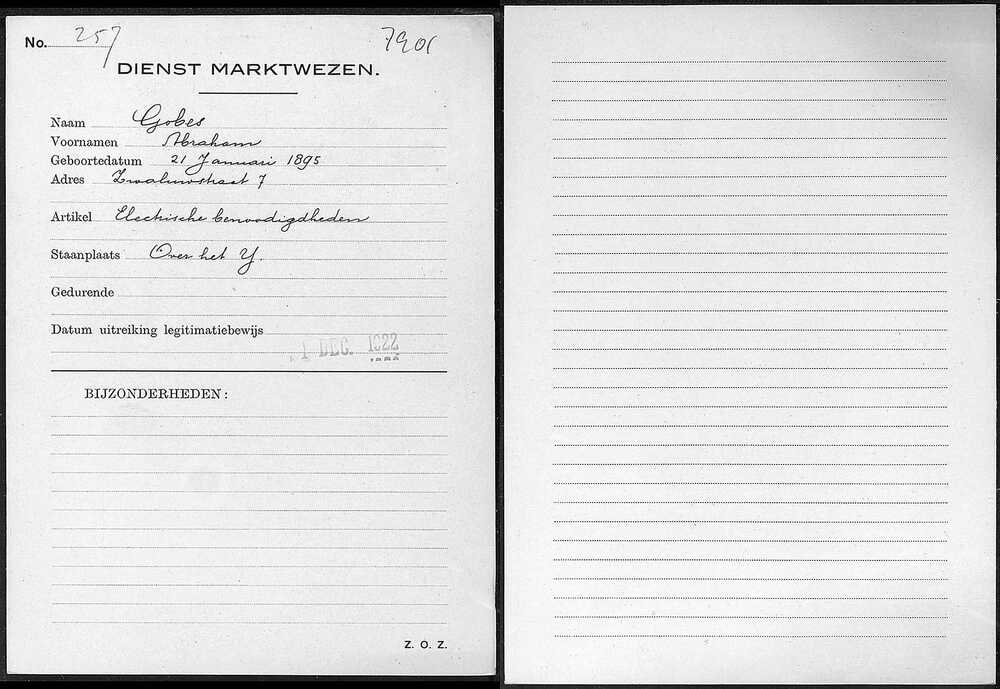 No. 257
7901
DIENST MARKTWEZEN.
Naam Gobes
Voornamen Abraham
Geboortedatum 21 Januari 1895
Adres Zwaluwstraat 7
Artikel Electrische benoodigdheden
Staanplaats Over het Y.
Gedurende
Datum uitreiking legitimatiebewijs
1 DEC. 1922
BIJZONDERHEDEN:
Z. O. Z.